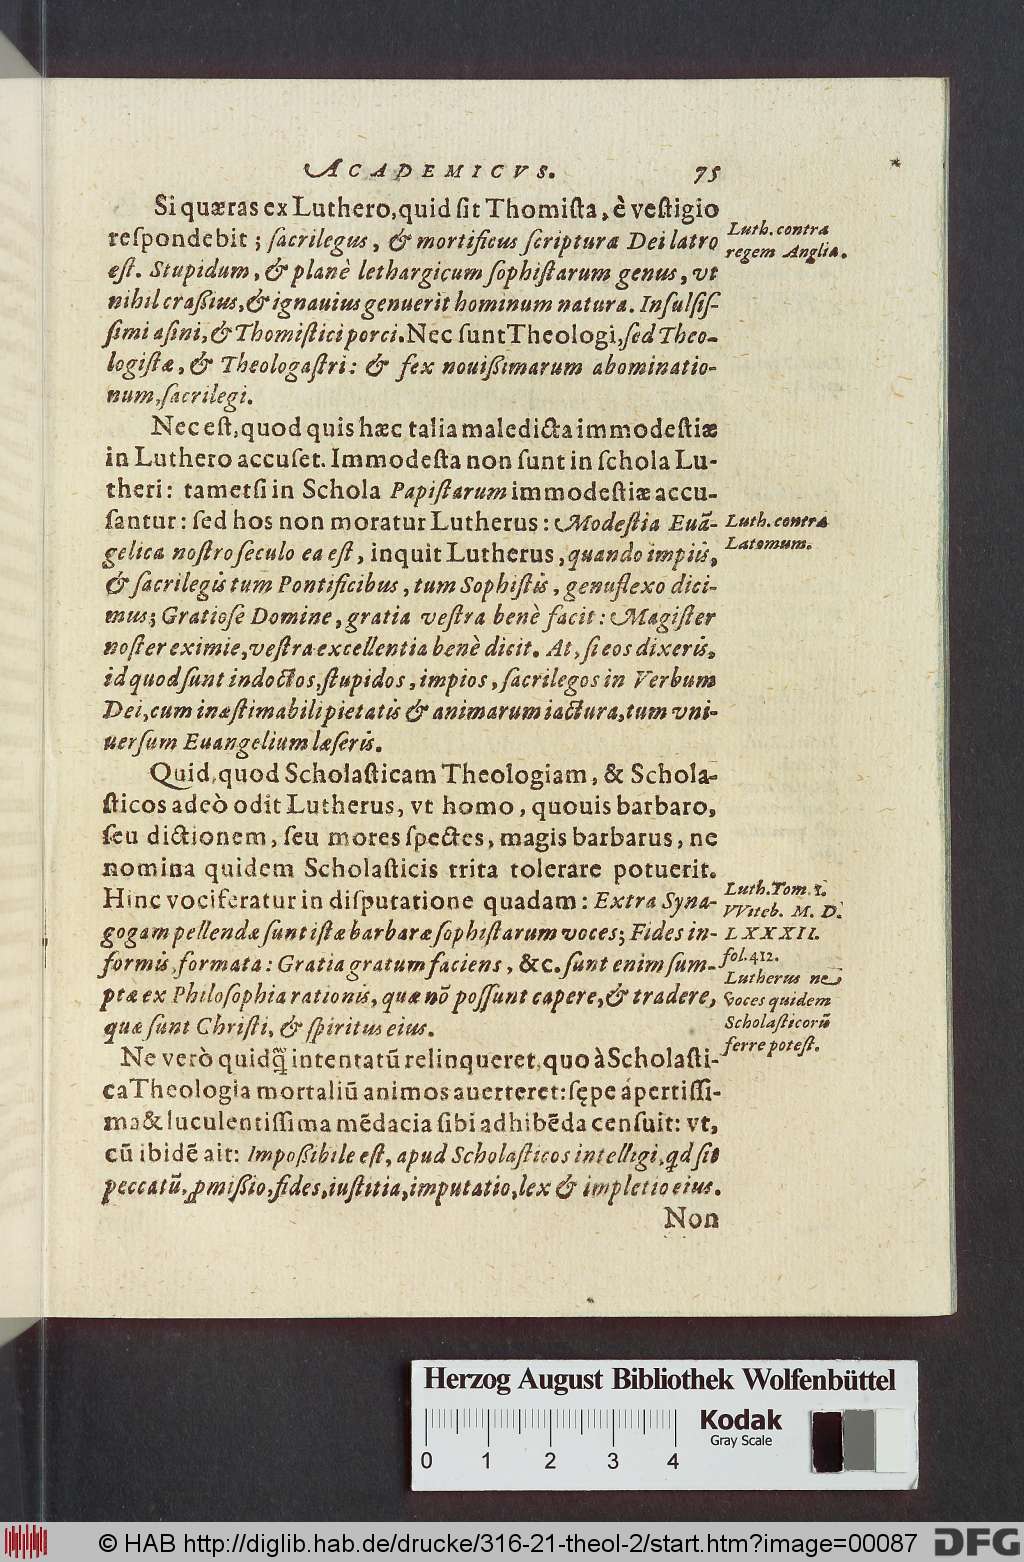 ACADEMICVS. 75
Si quæras ex Luthero, quid ſit Thomiſta, è veſtigio
reſpondebit; ſacrilegus, & mortificus ſcripturæ Dei latro
eſt. Stupidum, & planè lethargicum ſophiſtarum genus, vt
nihil craßius, & ignauius genuerit hominum natura. Inſulſiſ-
ſimi aſini, & Thomiſtici porci. Nec ſunt Theologi, ſed Theo-
logiſtæ, & Theologaſtri: & fex nouißimarum abominatio-
num, ſacrilegi.
Luth. contra
regem Angliæ.
Nec eſt, quod quis hæc talia maledicta immodeſtiæ
in Luthero accuſet. Immodeſta non ſunt in ſchola Lu-
theri: tametſi in Schola Papiſtarum immodeſtiæ accu-
ſantur: ſed hos non moratur Lutherus: Modeſtia Euã-
gelica noſtro ſeculo ea eſt, inquit Lutherus, quando impiis,
& ſacrilegis tum Pontificibus, tum Sophiſtis, genuflexo dici-
mus; Gratioſe Domine, gratia veſtra benè facit: Magiſter
noſter eximie, veſtra excellentia benè dicit. At, ſi eos dixeris,
id quod ſunt indoctos, ſtupidos, impios, ſacrilegos in Verbum
Dei, cum inæſtimabili pietatis & animarum iactura, tum vni-
uerſum Euangelium læſeris.
Luth. contra
Latomum.
Quid, quod Scholaſticam Theologiam, & Schola-
ſticos adeò odit Lutherus, vt homo, quouis barbaro,
ſeu dictionem, ſeu mores ſpectes, magis barbarus, ne
nomina quidem Scholaſticis trita tolerare potuerit.
Hinc vociferatur in diſputatione quadam: Extra Syna-
gogam pellendæ ſunt iſtæ barbaræ ſophiſtarum voces; Fides in-
formis, formata: Gratia gratum faciens, &c. ſunt enim ſum-
ptæ ex Philoſophia rationis, quæ nõ poſſunt capere, & tradere,
quæ ſunt Chriſti, & ſpiritus eius.
Luth. Tom. 1.
VViteb. M. D.
LXXXII.
fol. 412.
Lutherus ne
voces quidem
Scholaſticorũ
ferre poteſt.
Ne verò quidq̃ intentatũ relinqueret, quo à Scholaſti-
ca Theologia mortaliũ animos auerteret: ſępe apertiſſi-
ma & luculentiſſima mẽdacia ſibi adhibẽda cenſuit: vt,
cũ ibidẽ ait: Impoßibile eſt, apud Scholaſticos intelligi, qd ſit
peccatũ, ꝓmißio, fides, iuſtitia, imputatio, lex & impletio eius.
Non
Herzog August Bibliothek Wolfenbüttel
Kodak
Gray Scale
0 1 2 3 4
© HAB http://diglib.hab.de/drucke/316-21-theol-2/start.htm?image=00087
DFG